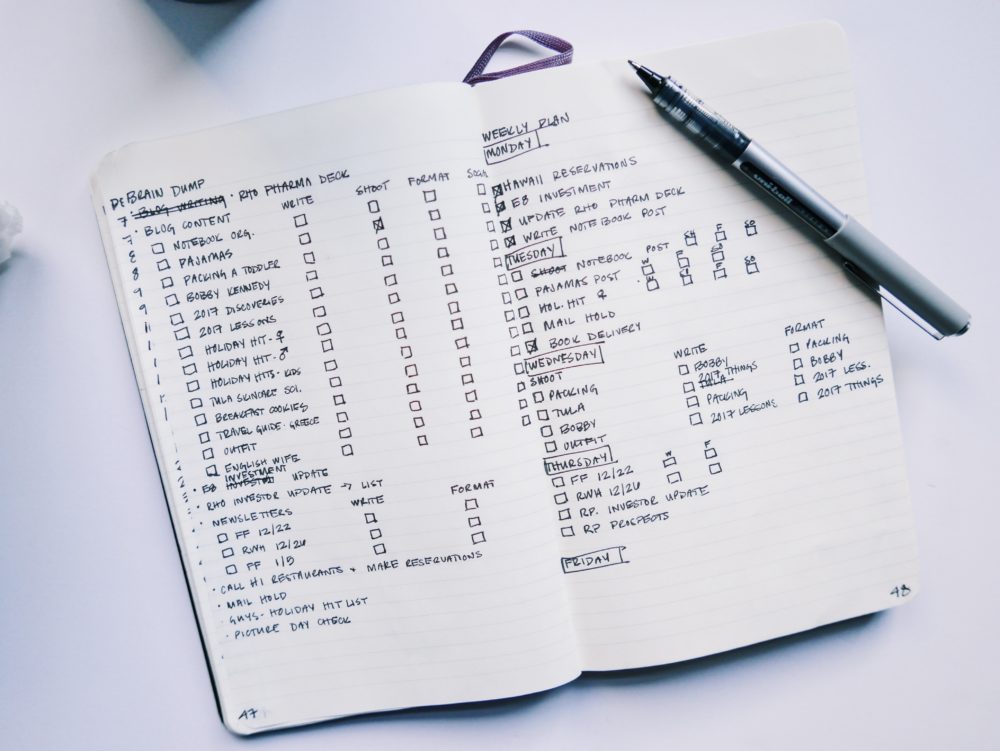 BRAIN DUMP
· BLOG WRITING · RHO PHARMA DECK
· BLOG CONTENT WRITE SHOOT FORMAT
NOTEBOOK ORG.
PAJAMAS
PACKING A TODDLER
BOBBY KENNEDY
2017 DISCOVERIES
2017 LESSONS
HOLIDAY HIT - ♀
HOLIDAY HIT - ♂
HOLIDAY HITS - KIDS
TULA SKINCARE SOL.
BREAKFAST COOKIES
TRAVEL GUIDE - GREECE
OUTFIT
ENGLISH WIFE
· E8 INVESTMENT UPDATE
· RHO INVESTOR UPDATE → LIST
· NEWSLETTERS WRITE FORMAT
FF 12/22
RWH 12/26
FF 1/5
· CALL HI RESTAURANTS + MAKE RESERVATIONS
· MAIL HOLD
· GUYS - HOLIDAY HIT LIST
· PICTURE DAY CHECK
47
WEEKLY PLAN
MONDAY
HAWAII RESERVATIONS
E8 INVESTMENT
UPDATE RHO PHARM DECK
WRITE NOTEBOOK POST
TUESDAY
SHOOT NOTEBOOK POST SH F SO
PAJAMAS POST W F SO
HOL. HIT ♀ W SH F SO
MAIL HOLD
BOOK DELIVERY
WEDNESDAY
SHOOT
PACKING
TULA
BOBBY
OUTFIT
WRITE
BOBBY
2017 THINGS
TULA
PACKING
2017 LESSONS
FORMAT
PACKING
BOBBY
2017 LESS.
2017 THINGS
THURSDAY
FF 12/22 W F
RWH 12/26
RP. INVESTOR UPDATE
RP PROSPECTS
FRIDAY
48
uni-ball